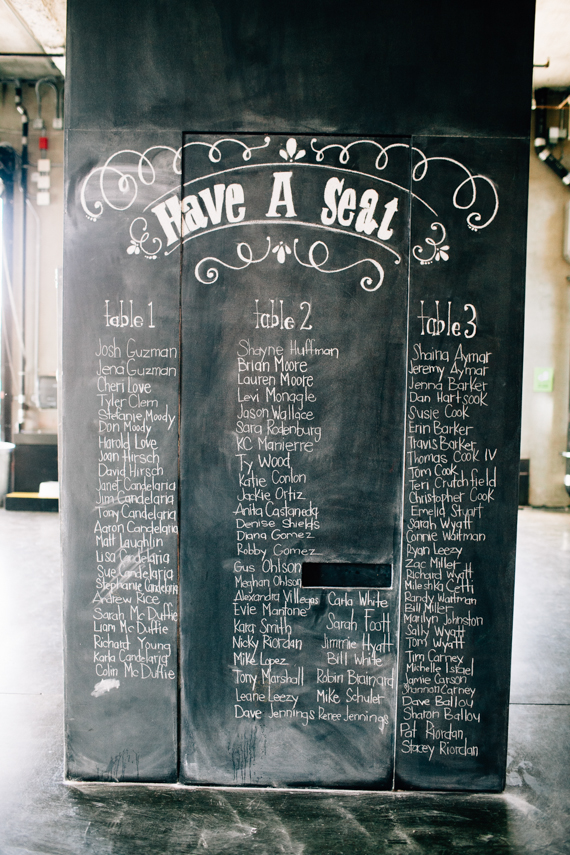 Have A Seat
table 1
Josh Guzman
Jena Guzman
Cheri Love
Tyler Clem
Stefanie Moody
Don Moody
Harold Love
Joan Hirsch
David Hirsch
Janet Candelaria
Jim Candelaria
Tony Candelaria
Aaron Candelaria
Matt Laughlin
Lisa Candelaria
Sue Candelaria
Stephanie Candelaria
Andrew Rice
Sarah McDuffie
Liam McDuffie
Richard Young
Karla Candelaria
Colin McDuffie
table 2
Shayne Huffman
Brian Moore
Lauren Moore
Levi Monagle
Jason Wallace
Sara Rodenburg
KC Manierre
Ty Wood
Katie Conlon
Jackie Ortiz
Anita Castaneda
Denise Shields
Diana Gomez
Robby Gomez
Gus Ohlson
Meghan Ohlson
Alexandra Villegas
Evie Maritone
Kara Smith
Nicky Riordan
Mike Lopez
Tony Marshall
Leane Leezy
Dave Jennings
Carla White
Sarah Foott
Jimmie Hyatt
Bill White
Robin Brainard
Mike Schuler
Renee Jennings
table 3
Shaina Aymar
Jeremy Aymar
Jenna Barker
Dan Hartsook
Susie Cook
Erin Barker
Travis Barker
Thomas Cook IV
Tom Cook
Teri Crutchfield
Christopher Cook
Emelid Stuart
Sarah Wyatt
Connie Waitman
Ryan Leezy
Zac Miller
Richard Wyatt
Mileshka Cetti
Randy Waitman
Bill Miller
Marilyn Johnston
Sally Wyatt
Tom Wyatt
Tim Carney
Michelle Israel
Jamie Carson
Shannon Carney
Dave Ballou
Sharon Ballou
Pat Riordan
Stacey Riordan